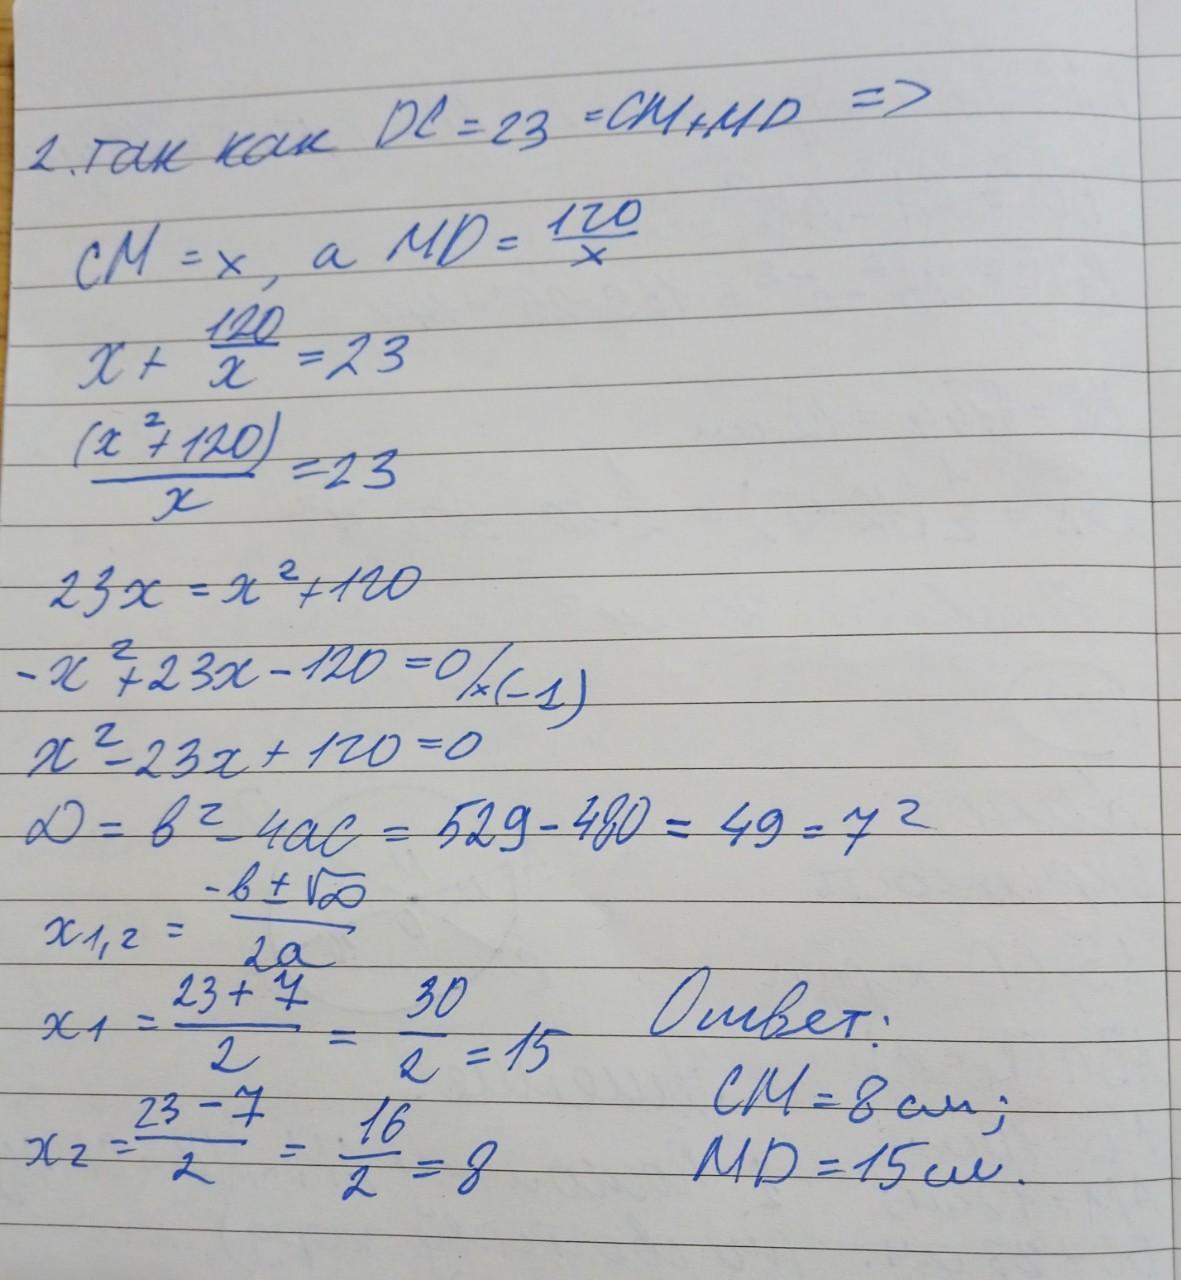 2. так как DC = 23 = CM + MD =>
CM = x, а MD = 120/x
x + 120/x = 23
(x² + 120)/x = 23
23x = x² + 120
-x² + 23x - 120 = 0 /×(-1)
x² - 23x + 120 = 0
D = b² - 4ac = 529 - 480 = 49 = 7²
x1,2 = (-b ± √D)/2a
x1 = (23 + 7)/2 = 30/2 = 15
x2 = (23 - 7)/2 = 16/2 = 8
Ответ:
CM = 8 см;
MD = 15 см.